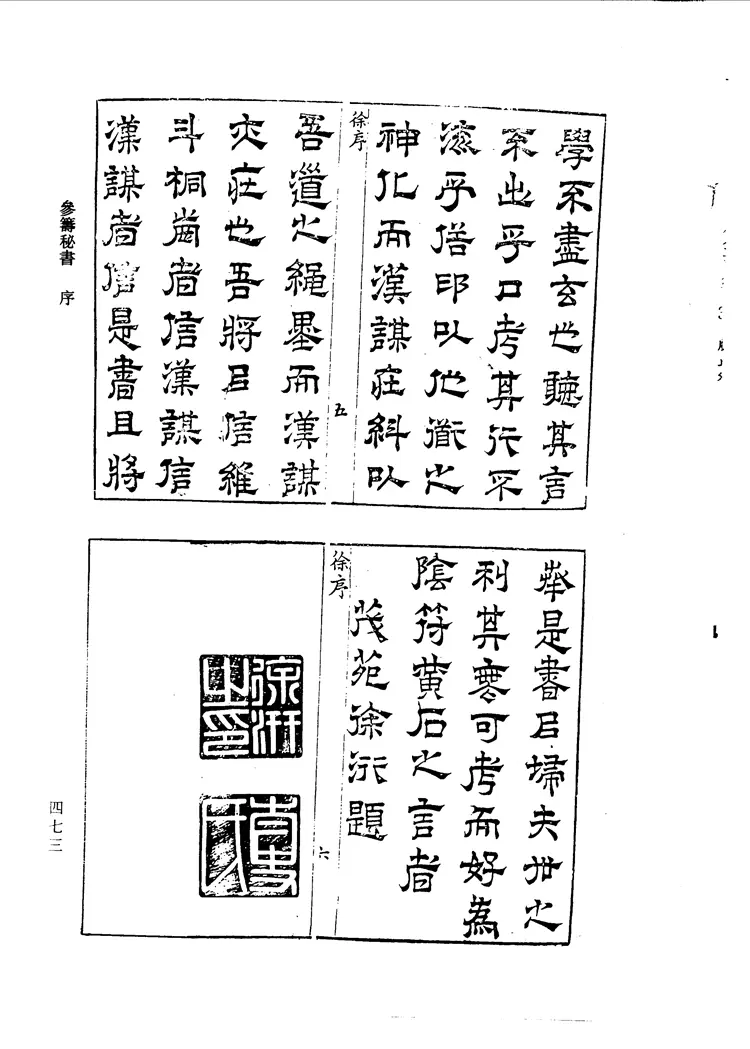 學不盡玄也聽其言
不出乎口考其行不
乎 印以他 之
神化而漢謀在 以
吾道之繩墨而漢謀
在也吾將以信維
斗桐 者信漢謀信
漢謀者信是書且將
徐序
五
舉是書以掃夫世之
利其 可考而好為
陰符黃石之言者
茂苑徐汧題
徐序
六
徐汧之印
參籌秘書 序
四七三